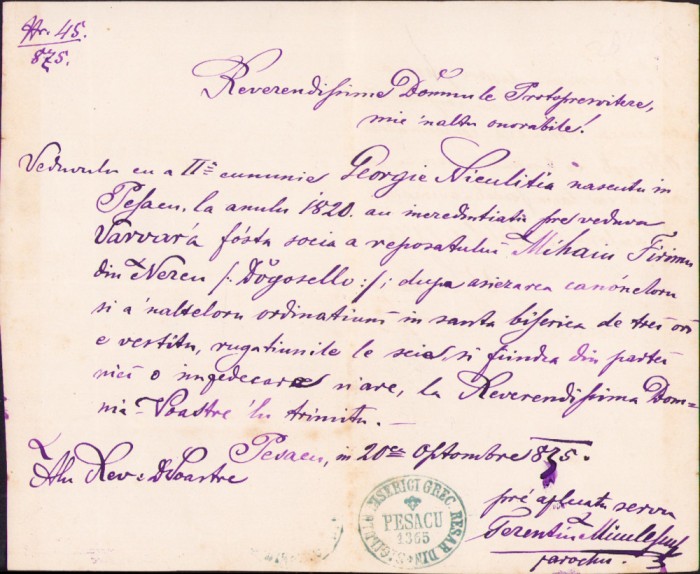 Nr. 45.
875.
Reverendissime Domnule Protopresvitere,
mie 'naltu onorabile!
Veduvulu cu a IIa cununie Georgie Niculitia nascutu in
Pesacu, la anulu 1820. au incredintiatu pre veduva
Varvar'a fósta socia a reposatului Mihaiu Firimu
din Nereu /: Dögosello :/; dupa asiezarea canóneloru
si a 'nalteloru ordinatiuni in santa biserica de trei ori
e vestitu, rugatiunile le scie, si fiindca din partea
mea o impedecare n'are, la Reverendissima Dom=
nia-Voastre 'lu trimitu. –
Pesacu, in 20ea Optomvre 875.
Alu Rev. D Voastre
pré aplecatu servu
Terentiu Miculescu
parochu.
SIGILUL BISERICI GREC. RESAR DIN
PESACU
1365